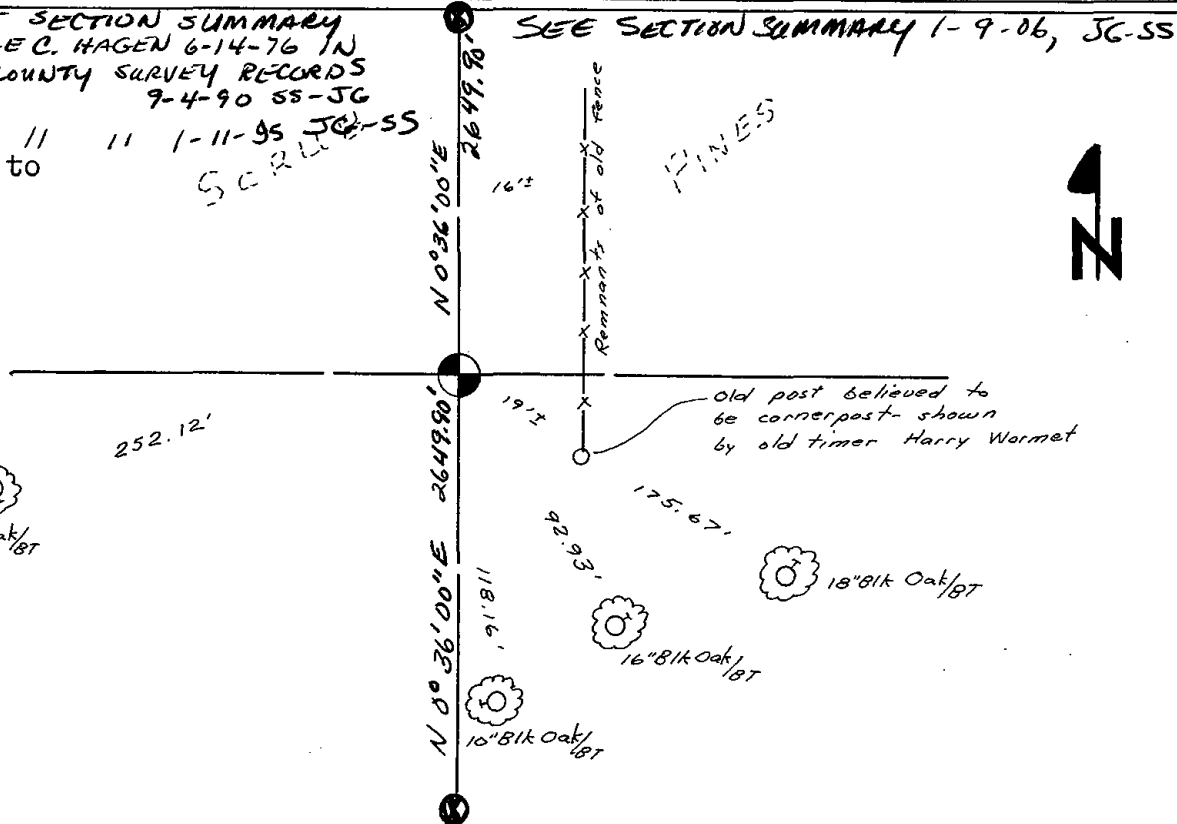 SECTION SUMMARY
E C. HAGEN 6-14-76 IN
COUNTY SURVEY RECORDS
9-4-90 SS-JG
" " 1-11-95 JG-SS
to
SEE SECTION SUMMARY 1-9-06, JG-SS
SCRUB
PINES
2649.90'
N 0°36'00"E
16'±
Remnants of old fence
N
252.12'
19'±
old post believed to
be cornerpost - shown
by old timer Harry Wormet
175.67'
92.93'
118.16'
2649.90'
N 0°36'00"E
18"Blk Oak/BT
16"Blk Oak/BT
10"Blk Oak/BT
ak/BT